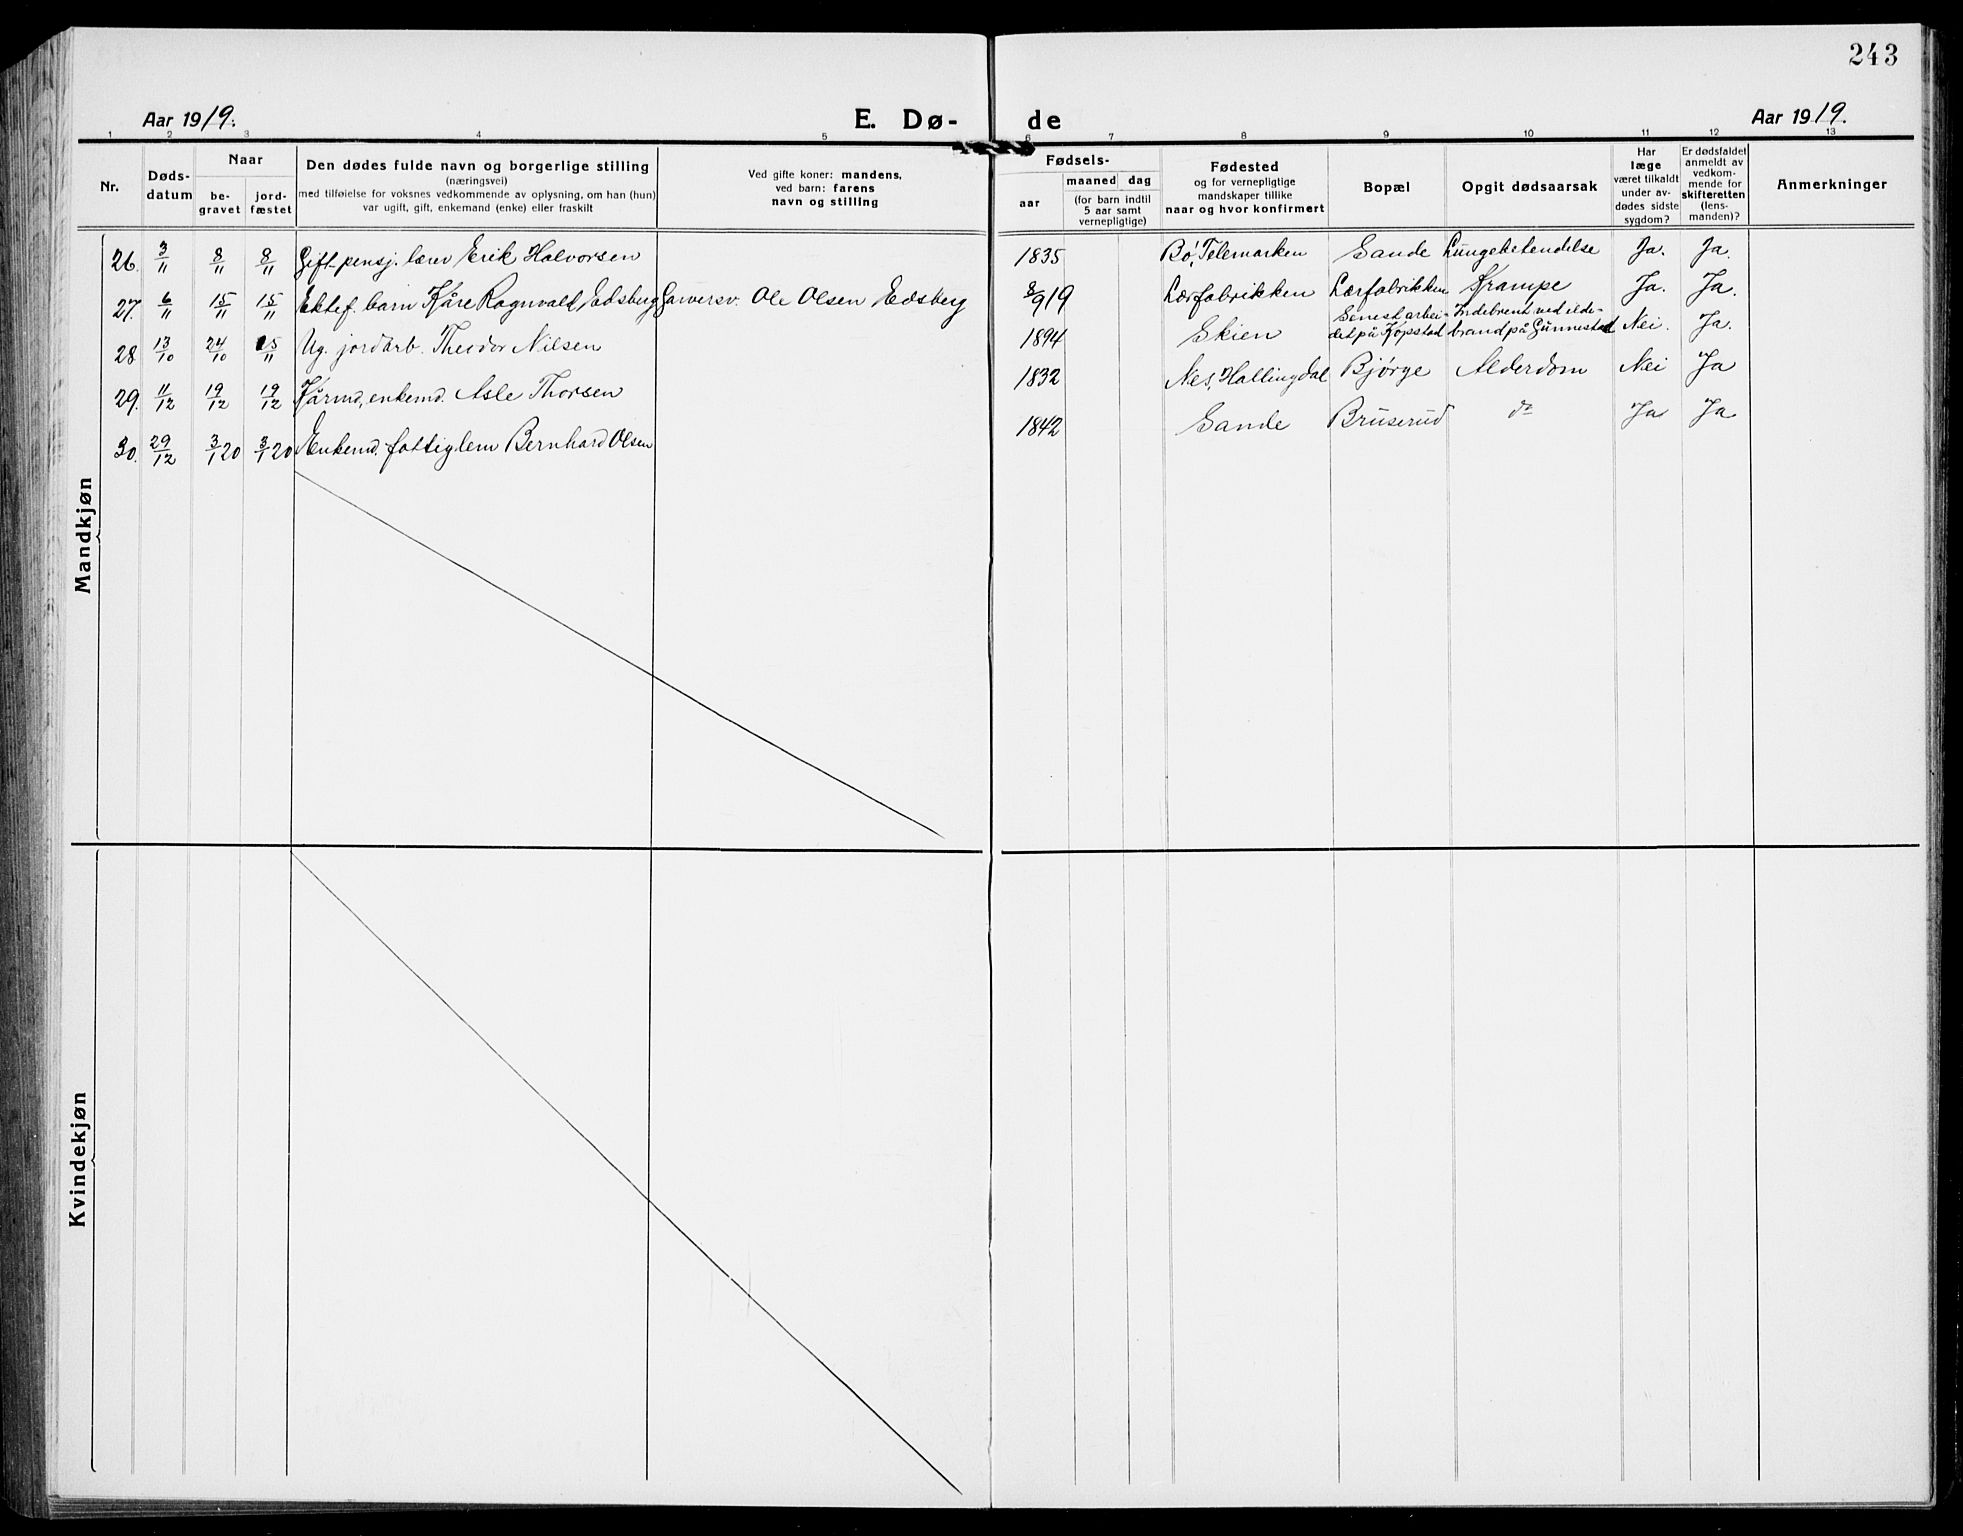 243
Aar 1919. E. Dø- de Aar 1919.
1 2 3 4 5 6 7 8 9 10 11 12 13
Nr. Døds-datum Naar be-gravet jord-fæstet Den dødes fulde navn og borgerlige stilling (næringsvei) med tilføielse for voksnes vedkommende av oplysning, om han (hun) var ugift, gift, enkemand (enke) eller fraskilt Ved gifte koner: mandens, ved barn: farens navn og stilling Fødsels- aar maaned dag (for barn indtil 5 aar samt vernepligtige) Fødested og for vernepligtige mandskaper tillike naar og hvor konfirmert Bopæl Opgit dødsaarsak Har læge været tilkaldt under av-dødes sidste sygdom? Er dødsfaldet anmeldt av vedkom-mende for skifteretten (lens-manden)? Anmerkninger
Mandkjøn
26. 3/11 8/11 8/11 Gift pensj. lærer Erik Halvorsen 1835 Bø, Telemarken Sande Lungebetendelse Ja. Ja.
27. 6/11 15/11 15/11 Ektef. barn Kåre Ragnvald Edsberg Garversv. Ole Olsen Edsberg 8/9 19 Lærfabrikken Lærfabrikken Krampe Ja. Ja.
28 13/10 24/10 25/11 Ug. jordarb. Theodor Nilsen 1894 Skien Senest arbei-det på Kopstad Indebrent ved ilde-brand på Gunnestad Nei. Ja.
29. 11/12 19/12 19/12 Kårmd, enkemd. Asle Thorsen 1832 Nes, Hallingdal Bjørge Alderdom Nei Ja
30. 29/12 3/1 20 3/1 20 Enkemd, fattiglem Bernhard Olsen 1842 Sande Bruserud do Ja Ja
Kvindekjøn